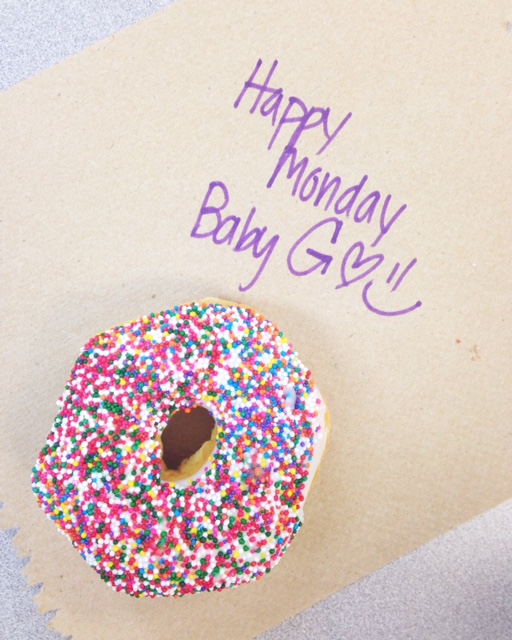 Happy
Monday
Baby G♡ ü